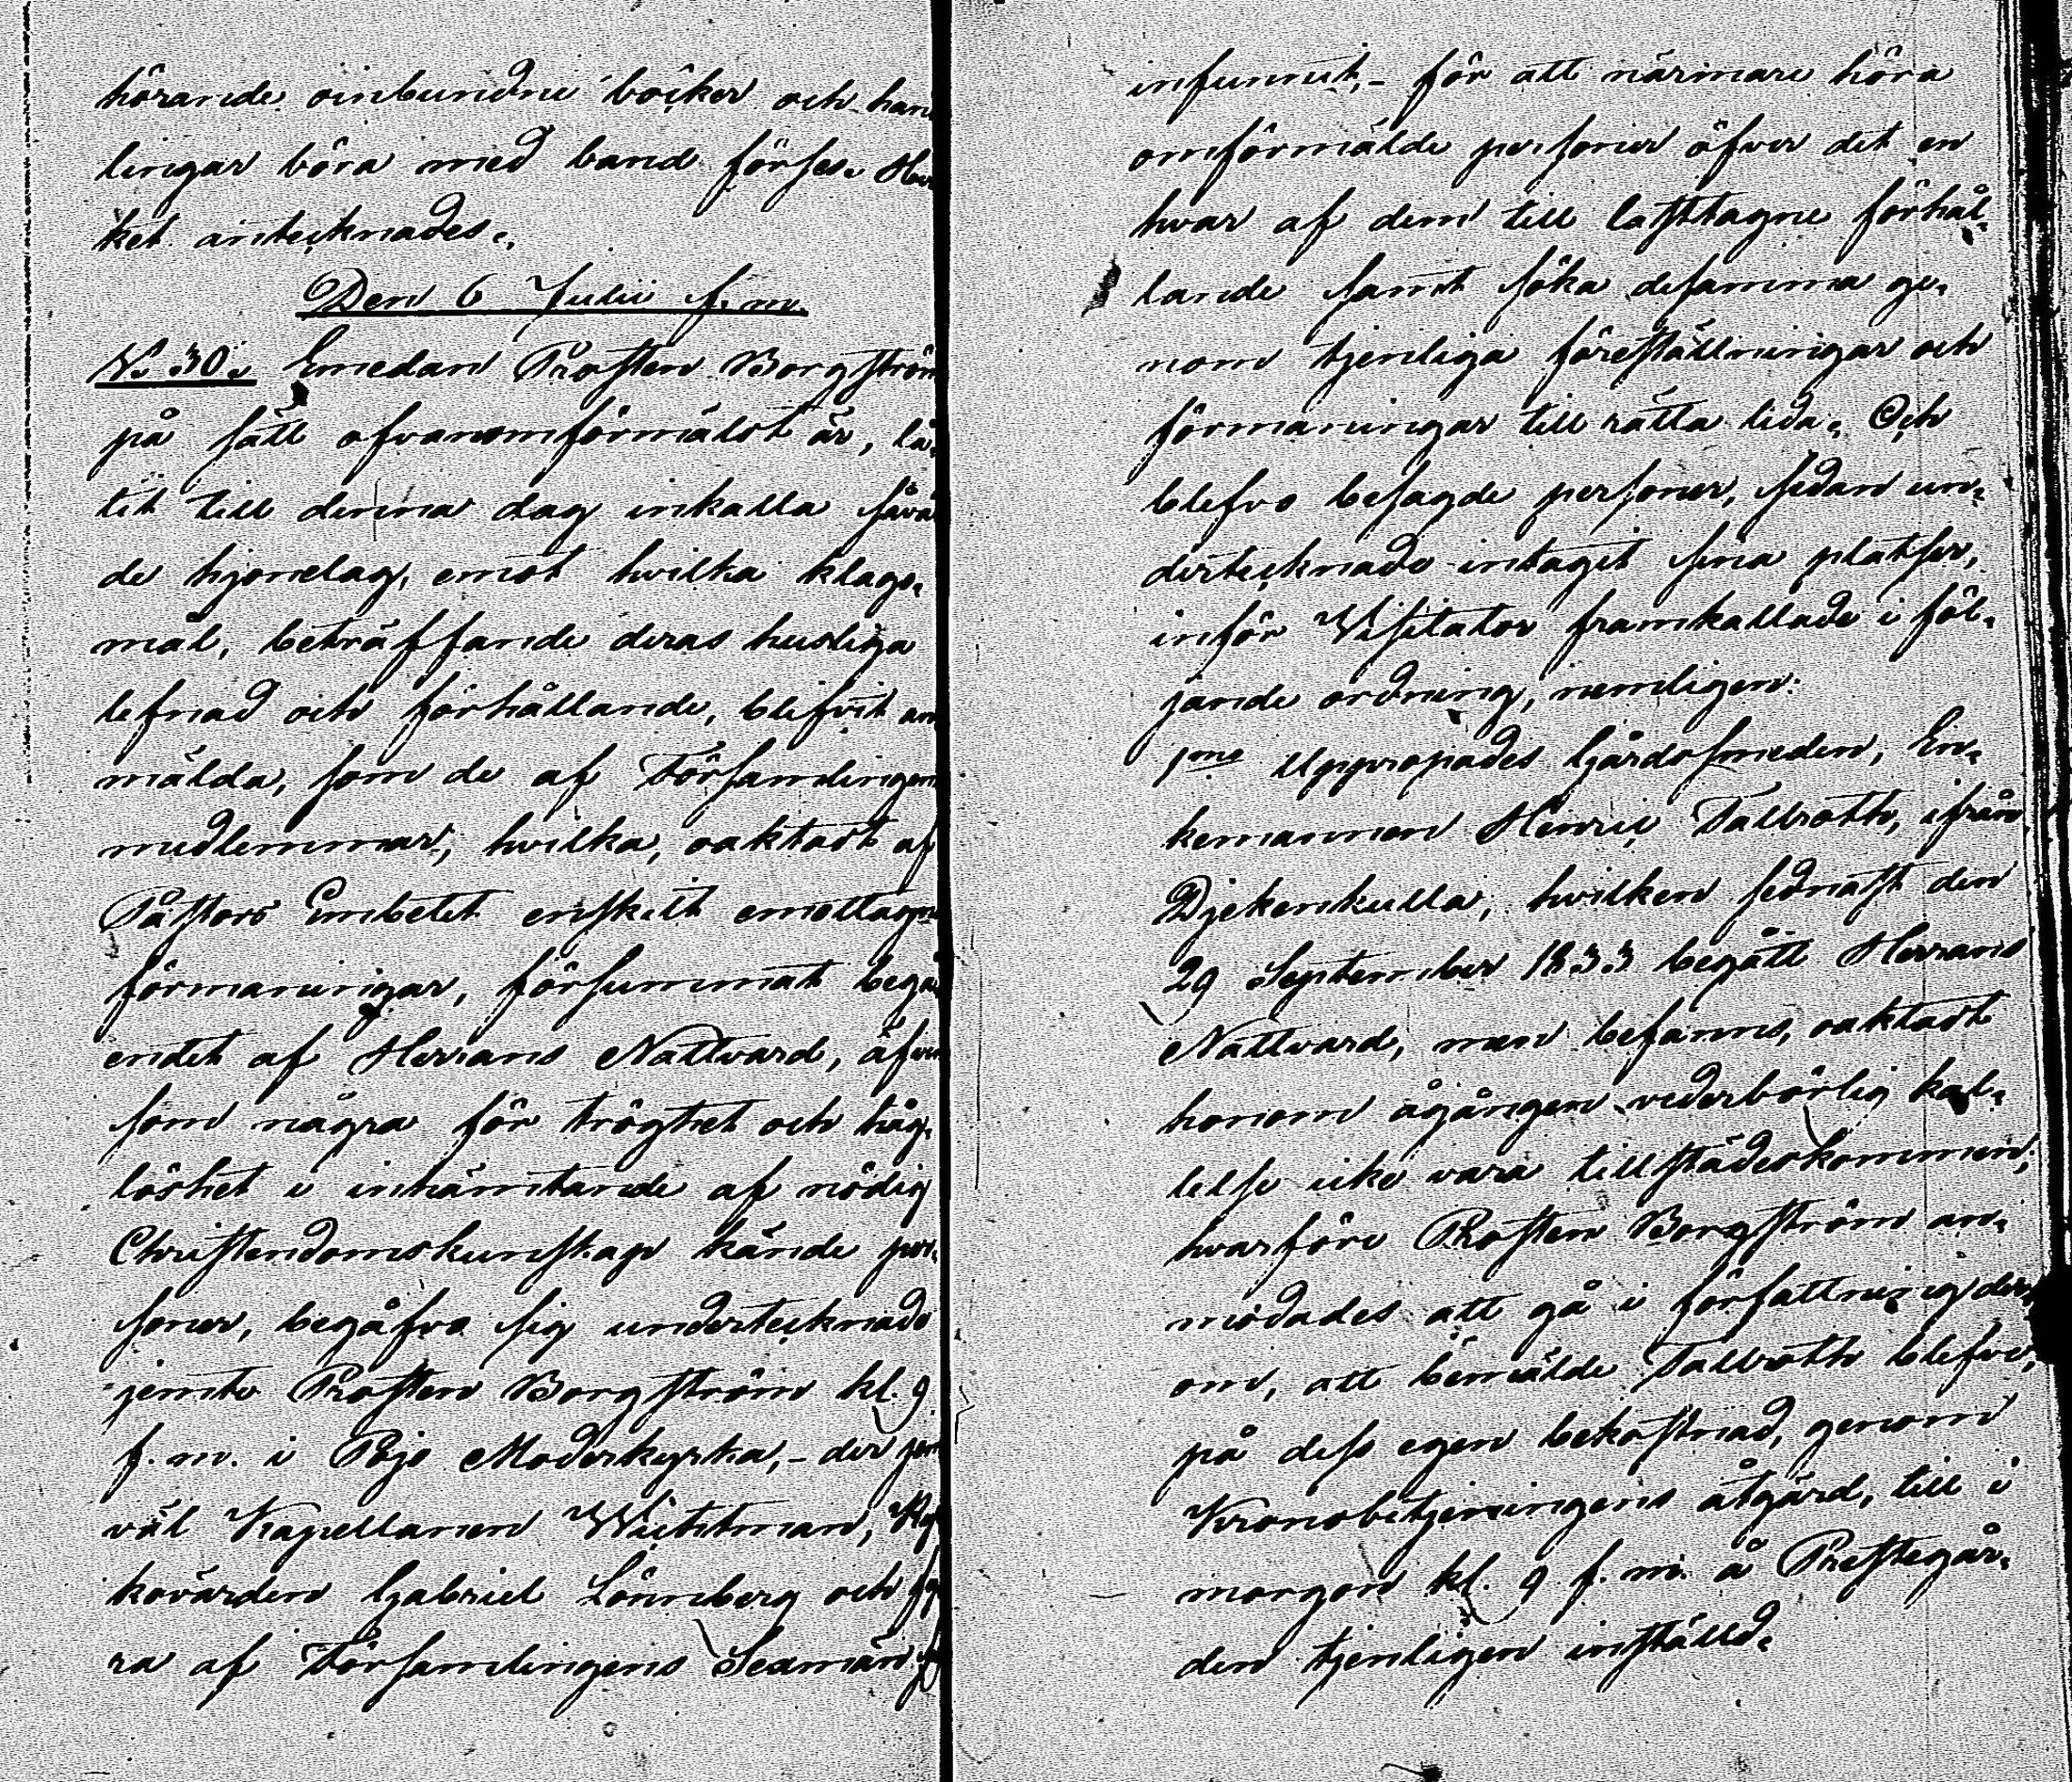 hörande oinbundne böcker och han
lingar böra med band förses. Hvi
ket antecknades.
Den 6 Julii f. m.
N:o 30. Emedan Prosten Borgström
på sätt ofvanomförmäldt är, lå-
tit till denna dag inkalla såväl
de hjonelag, emot hvilka klago-
mål, beträffande deras husliga
lefnad och förhållande, blifvit an
mälda, som de af Församlingens
medlemmar, hvilka, oaktadt af
Pastors Embetet enskilt emottagne
förmaningar, försummat begå
endet af Herrans Nattvard, äfven
som några för tröghet och håg-
löshet i inhämtande af nödig
Christendomskunskap kände per-
soner, begåfvo sig undertecknade
jemte Prosten Borgström kl. 9
f. m. i Pojo Moderkyrka, – der jem
väl Kapellanen Wichtman, Kyr
kovärden Gabriel Lönnberg och fy
ra af Församlingens Sexmän sig
infunnit, – för att närmare höra
omförmälde personer öfver det en
hvar af dem till lasttagne förhål-
lande samt söka desamma ge-
nom tjenliga föreställningar och
förmaningar till rätta leda. Och
blefvo besagde personer, sedan un-
dertecknade intagit sina platser,
inför Visitator framkallade i föl-
jande ordning, nemligen:
1mo Uppropades Gårdssmeden, En-
kemannen Henric Tallroth, ifrån
Djekenkulla, hvilken sednast den
29 September 1833 begått Herrans
Nattvard, men befanns, oaktadt
honom ågången vederbörlig kal-
lelse icke vara tillstädeskommen;
hvarföre Prosten Borgström an-
modades att gå i författning der-
om, att bemälde Tallroth blefve,
på dess egen bekostnad, genom
Kronobetjeningens åtgärd, till i
morgon kl. 9 f. m. å Prestegår-
den tjenligen inställd.